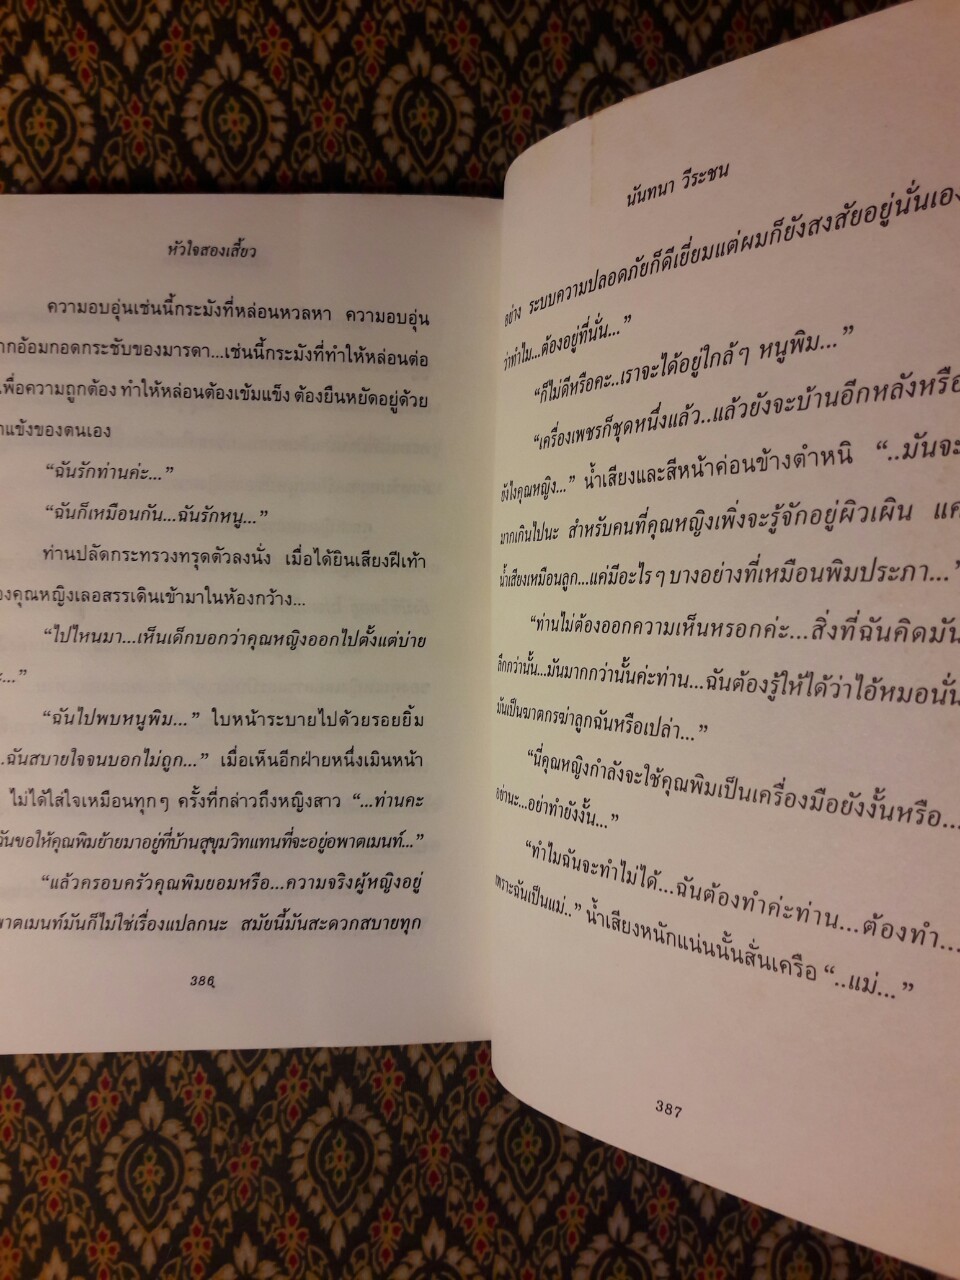 หัวใจสองเสี้ยว
ความอบอุ่นเช่นนี้กระมังที่หล่อนหวลหา ความอบอุ่น
ากอ้อมกอดกระชับของมารดา...เช่นนี้กระมังที่ทำให้หล่อนต่อ
เพื่อความถูกต้อง ทำให้หล่อนต้องเข้มแข็ง ต้องยืนหยัดอยู่ด้วย
าแข้งของตนเอง
“ฉันรักท่านค่ะ...”
“ฉันก็เหมือนกัน...ฉันรักหนู...”
ท่านปลัดกระทรวงทรุดตัวลงนั่ง เมื่อได้ยินเสียงฝีเท้า
องคุณหญิงเลอสรรเดินเข้ามาในห้องกว้าง...
“ไปไหนมา...เห็นเด็กบอกว่าคุณหญิงออกไปตั้งแต่บ่าย
ะ...”
“ฉันไปพบหนูพิม...” ใบหน้าระบายไปด้วยรอยยิ้ม
..ฉันสบายใจจนบอกไม่ถูก...” เมื่อเห็นอีกฝ่ายหนึ่งเมินหน้า
ไม่ได้ใส่ใจเหมือนทุกๆ ครั้งที่กล่าวถึงหญิงสาว “...ท่านคะ
ฉันขอให้คุณพิมย้ายมาอยู่ที่บ้านสุขุมวิทแทนที่จะอยู่อพาตเมนท์...”
“แล้วครอบครัวคุณพิมยอมหรือ...ความจริงผู้หญิงอยู่
พาตเมนท์มันก็ไม่ใช่เรื่องแปลกนะ สมัยนี้มันสะดวกสบายทุก
386
นันทนา วีระชน
อย่าง ระบบความปลอดภัยก็ดีเยี่ยมแต่ผมก็ยังสงสัยอยู่นั่นเอง
ว่าทำไม...ต้องอยู่ที่นั่น...”
“ก็ไม่ดีหรือคะ..เราจะได้อยู่ใกล้ๆ หนูพิม...”
“เครื่องเพชรก็ชุดหนึ่งแล้ว..แล้วยังจะบ้านอีกหลังหรือ
ยังไงคุณหญิง...” น้ำเสียงและสีหน้าค่อนข้างตำหนิ “..มันจะ
มากเกินไปนะ สำหรับคนที่คุณหญิงเพิ่งจะรู้จักอยู่ผิวเผิน แค่
น้ำเสียงเหมือนลูก...แค่มีอะไรๆ บางอย่างที่เหมือนพิมประภา...”
“ท่านไม่ต้องออกความเห็นหรอกค่ะ...สิ่งที่ฉันคิดมัน
ลึกกว่านั้น...มันมากกว่านั้นค่ะท่าน...ฉันต้องรู้ให้ได้ว่าไอ้หมอนั่น
มันเป็นฆาตกรฆ่าลูกฉันหรือเปล่า...”
“นี่คุณหญิงกำลังจะใช้คุณพิมเป็นเครื่องมือยังงั้นหรือ...
อย่านะ...อย่าทำยังงั้น...”
“ทำไมฉันจะทำไม่ได้...ฉันต้องทำค่ะท่าน...ต้องทำ...
เพราะฉันเป็นแม่..” น้ำเสียงหนักแน่นนั้นสั่นเครือ “..แม่...”
387